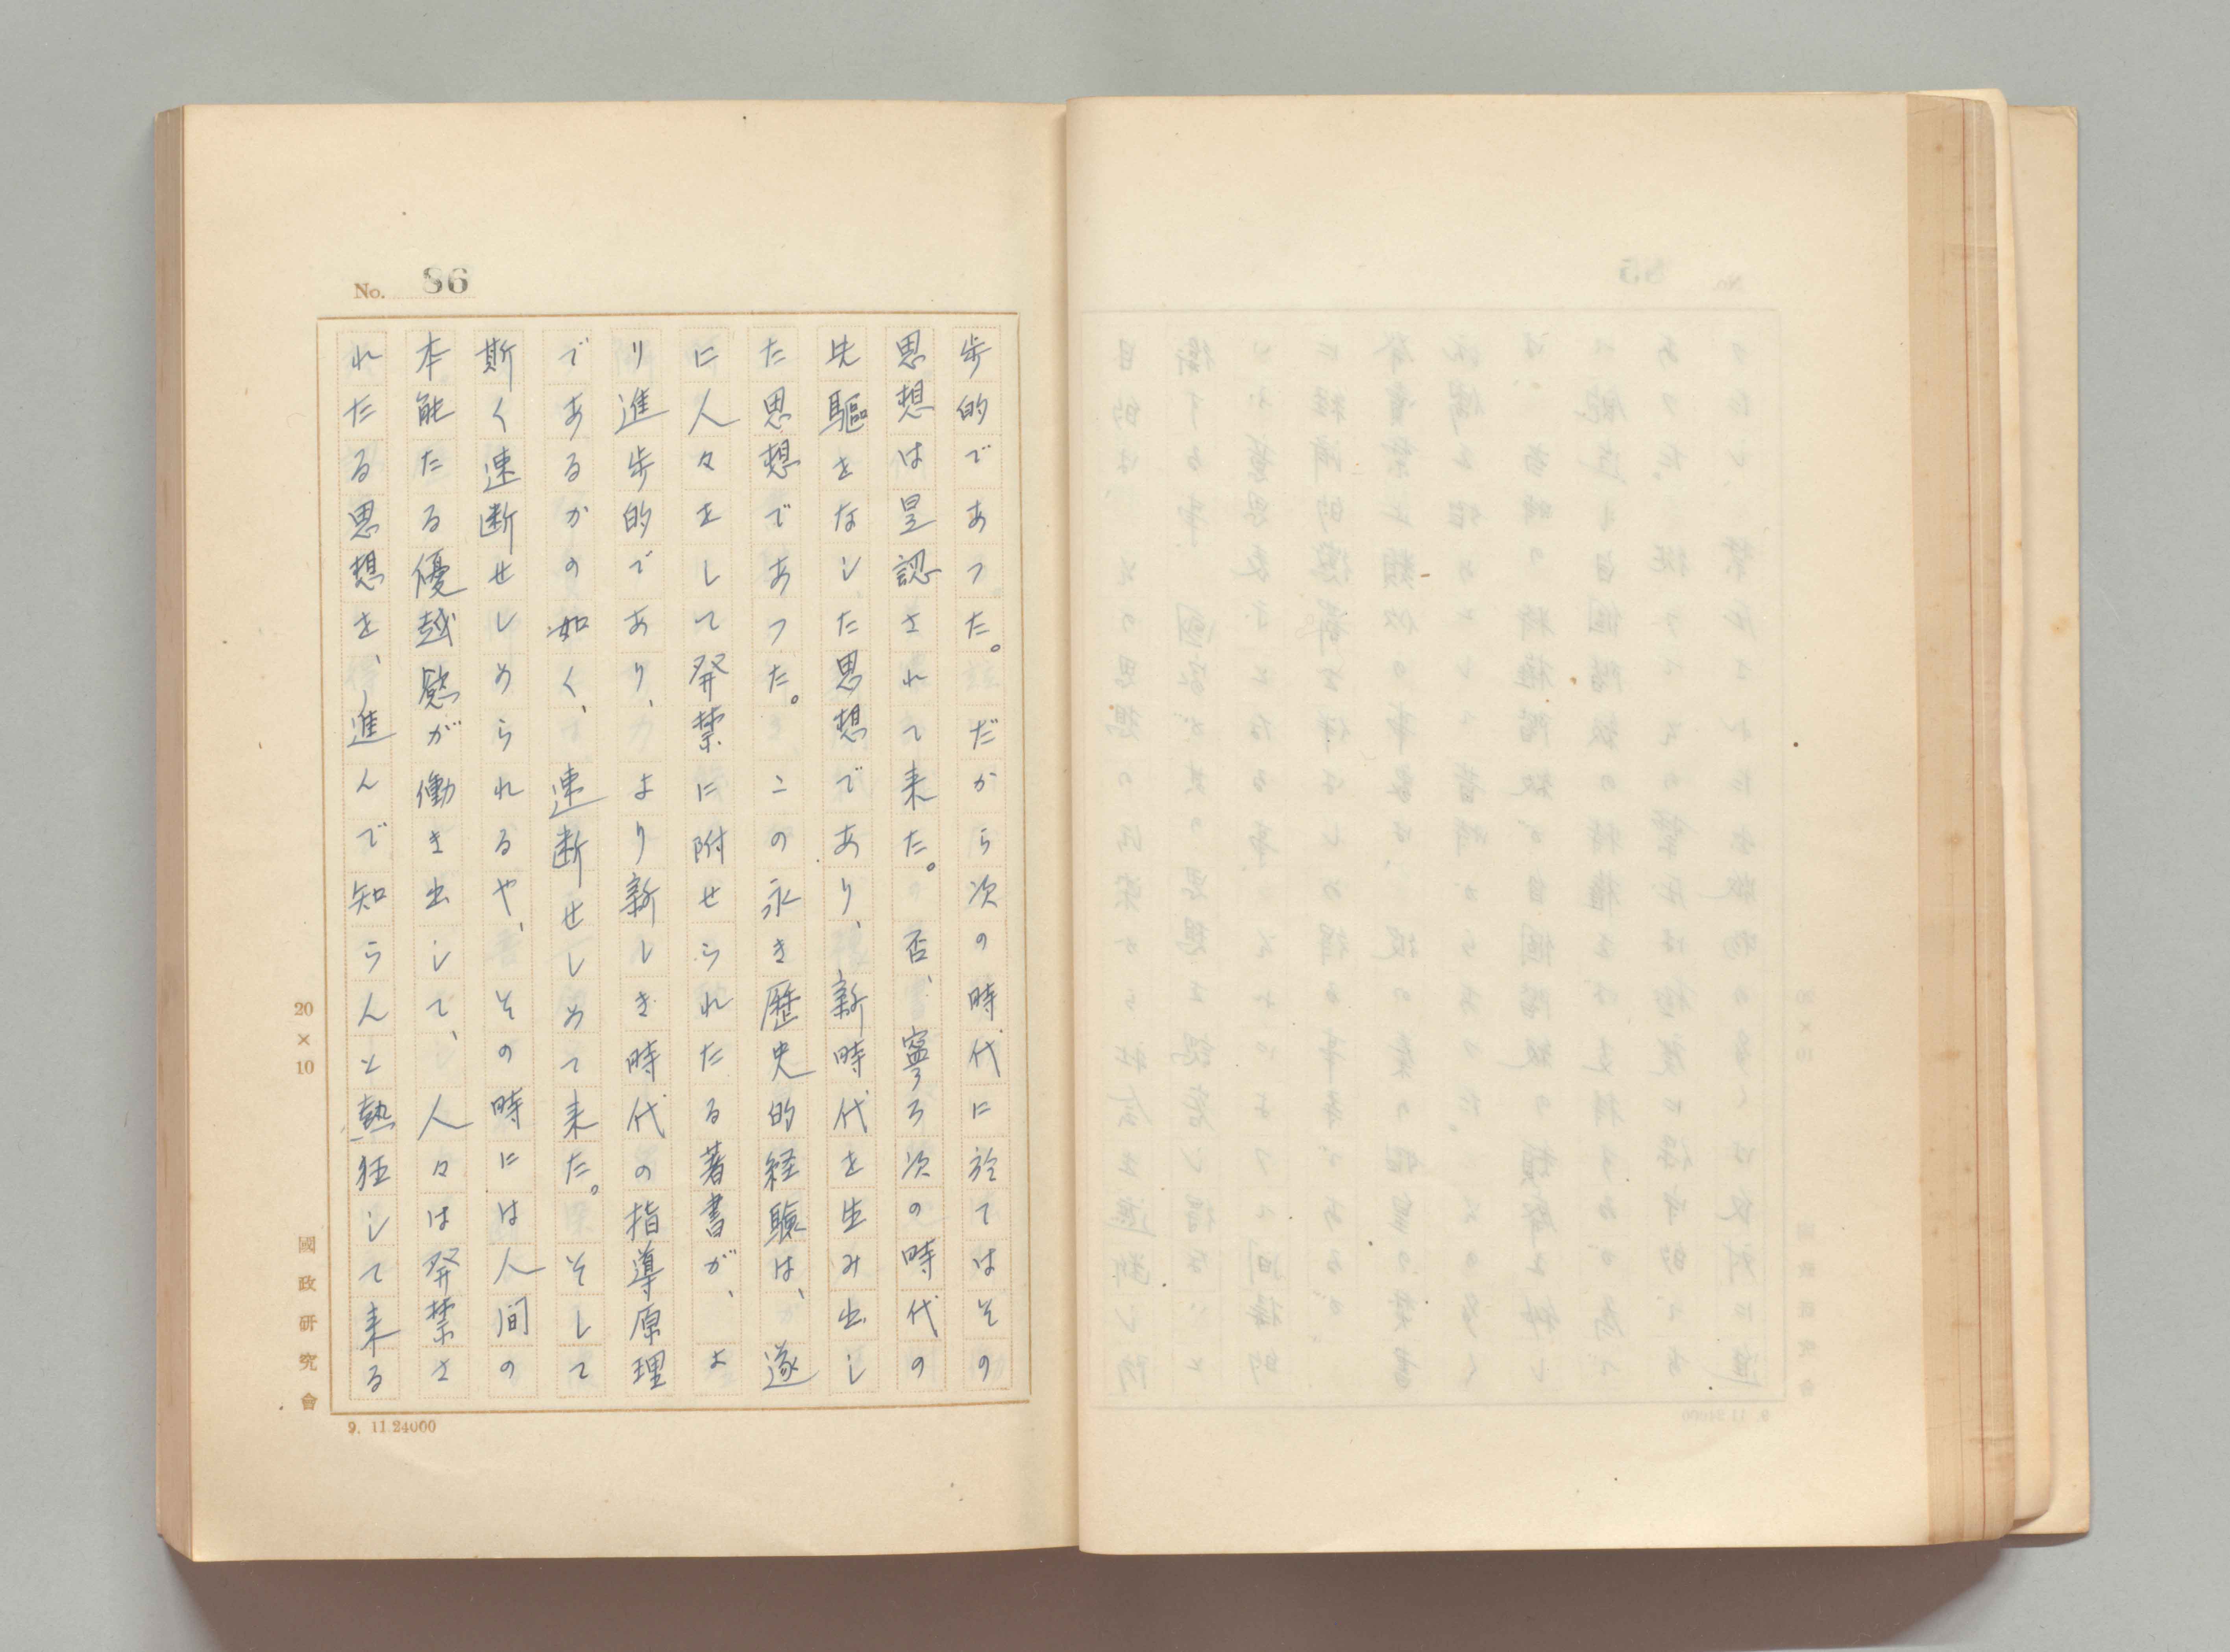 No. 86
歩的であつた。だから次の時代に於てはその
思想は是認されて来た。否、寧ろ次の時代の
先駆をなした思想であり、新時代を生み出し
た思想であつた。この永き歴史的経験は、遂
に人々をして発禁に附せられたる著書が、よ
り進歩的であり、より新しき時代の指導原理
であるかの如く、速断せしめて来た。そして
斯く速断せしめられるや、その時には人間の
本能たる優越慾が働き出して、人々は発禁さ
れたる思想を、進んで知らんと熱狂して来る
20×10
國政研究會
9. 11.24000